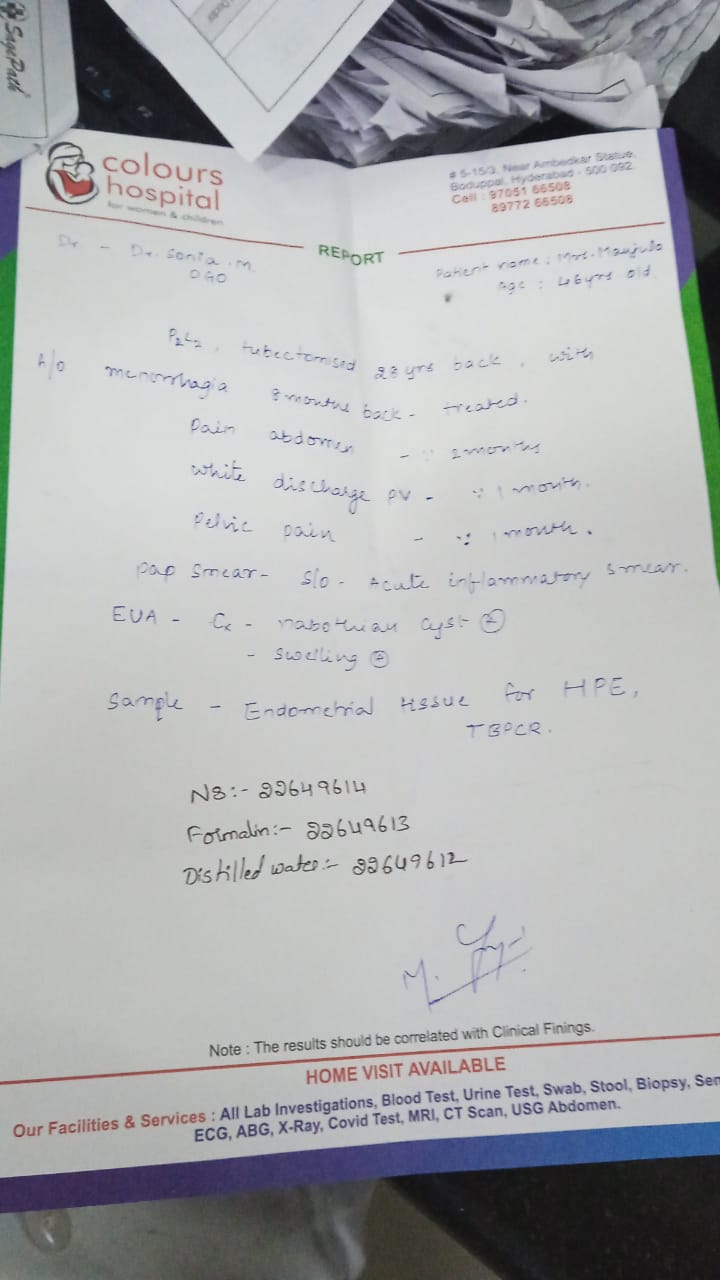 SagePath
colours
hospital
for women & children
# 5-15/3, Near Ambedkar Statue,
Boduppal, Hyderabad - 500 092.
Cell : 97051 66508
89772 66508
REPORT
Dr - Dr. Sonia .M.
DGO
Patient name : Mrs. Manjula
Age : 46yrs old.
P2L2, tubectomised 28 yrs back, with
h/o menorrhagia 8 months back - treated.
Pain abdomen - ∵ 2 months
white discharge PV - ∵ 1 month.
Pelvic pain - ∵ 1 month.
Pap smear - S/o - Acute inflammatory smear.
EUA - Cx - nabothian cyst ⊕
- swelling ⊕
Sample - Endometrial tissue for HPE,
TBPCR.
NS:- 22649614
Formalin:- 22649613
Distilled water:- 22649612
M.
Note : The results should be correlated with Clinical Finings.
HOME VISIT AVAILABLE
Our Facilities & Services : All Lab Investigations, Blood Test, Urine Test, Swab, Stool, Biopsy, Sem
ECG, ABG, X-Ray, Covid Test, MRI, CT Scan, USG Abdomen.